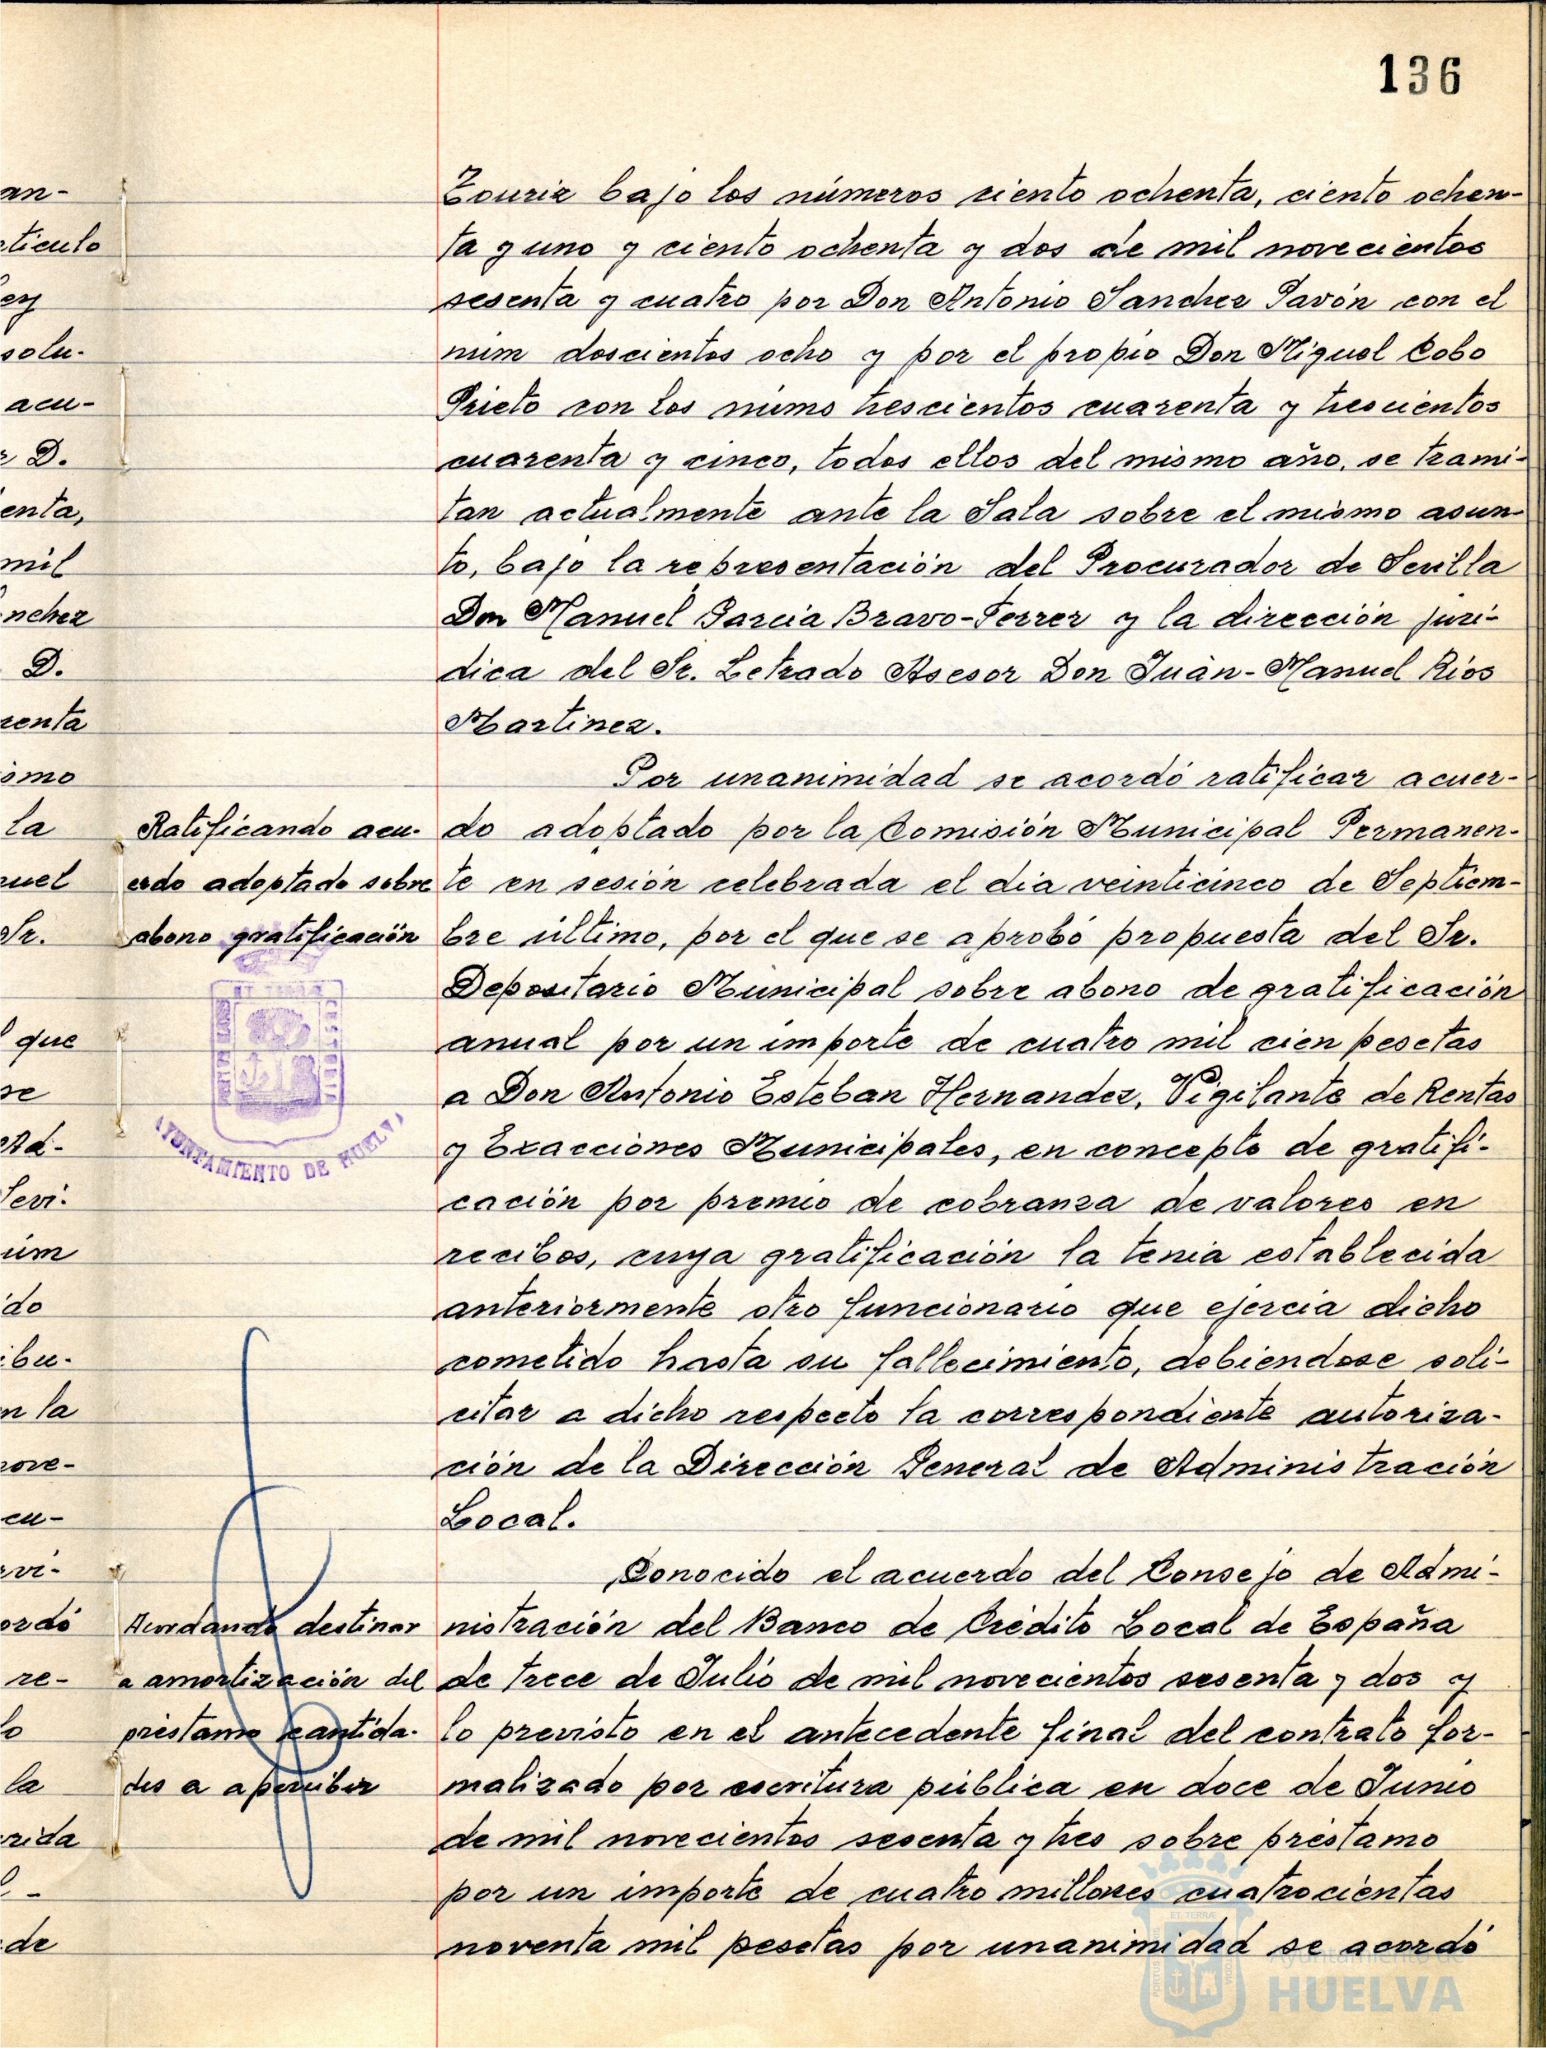 136
an-
ticulo
ey
solu-
acu-
D.
enta,
mil
nchez
D.
renta
ismo
la
nuel
Sr.
que
se
Ad-
Sevi-
úm
ido
ibu-
n la
nove-
cu-
rvi-
ordó
re-
lo
la
rida
de
Touriz bajo los números ciento ochenta, ciento ochen-
ta y uno y ciento ochenta y dos de mil novecientos
sesenta y cuatro por Don Antonio Sanchez Pavón con el
núm doscientos ocho y por el propio Don Miguel Cobo
Prieto con los núms trescientos cuarenta y trescientos
cuarenta y cinco, todos ellos del mismo año, se trami-
tan actualmente ante la Sala sobre el mismo asun-
to, bajo la representación del Procurador de Sevilla
Don Manuel Garcia Bravo-Ferrer y la dirección juri-
dica del Sr. Letrado Asesor Don Juan-Manuel Rios
Martinez.
Por unanimidad se acordó ratificar acuer-
Ratificando acu-
erdo adoptado sobre
abono gratificación
do adoptado por la Comisión Municipal Permanen-
te en sesión celebrada el dia veinticinco de Septiem-
bre último, por el que se aprobó propuesta del Sr.
Depositario Municipal sobre abono de gratificación
anual por un importe de cuatro mil cien pesetas
a Don Antonio Esteban Hernandez, Vigilante de Rentas
y Exacciones Municipales, en concepto de gratifi-
cación por premio de cobranza de valores en
recibos, cuya gratificación la tenia establecida
anteriormente otro funcionario que ejercia dicho
cometido hasta su fallecimiento, debiendose soli-
citar a dicho respecto la correspondiente autoriza-
ción de la Dirección General de Administración
Local.
AYUNTAMIENTO DE HUELVA
Conocido el acuerdo del Consejo de Admi-
Acordando destinar
a amortización del
préstamo cantida-
des a apercibir
nistración del Banco de Crédito Local de España
de trece de Julio de mil novecientos sesenta y dos y
lo previsto en el antecedente final del contrato for-
malizado por escritura pública en doce de Junio
de mil novecientos sesenta y tres sobre préstamo
por un importe de cuatro millones cuatrocientas
noventa mil pesetas por unanimidad se acordó
Ayuntamiento de
HUELVA